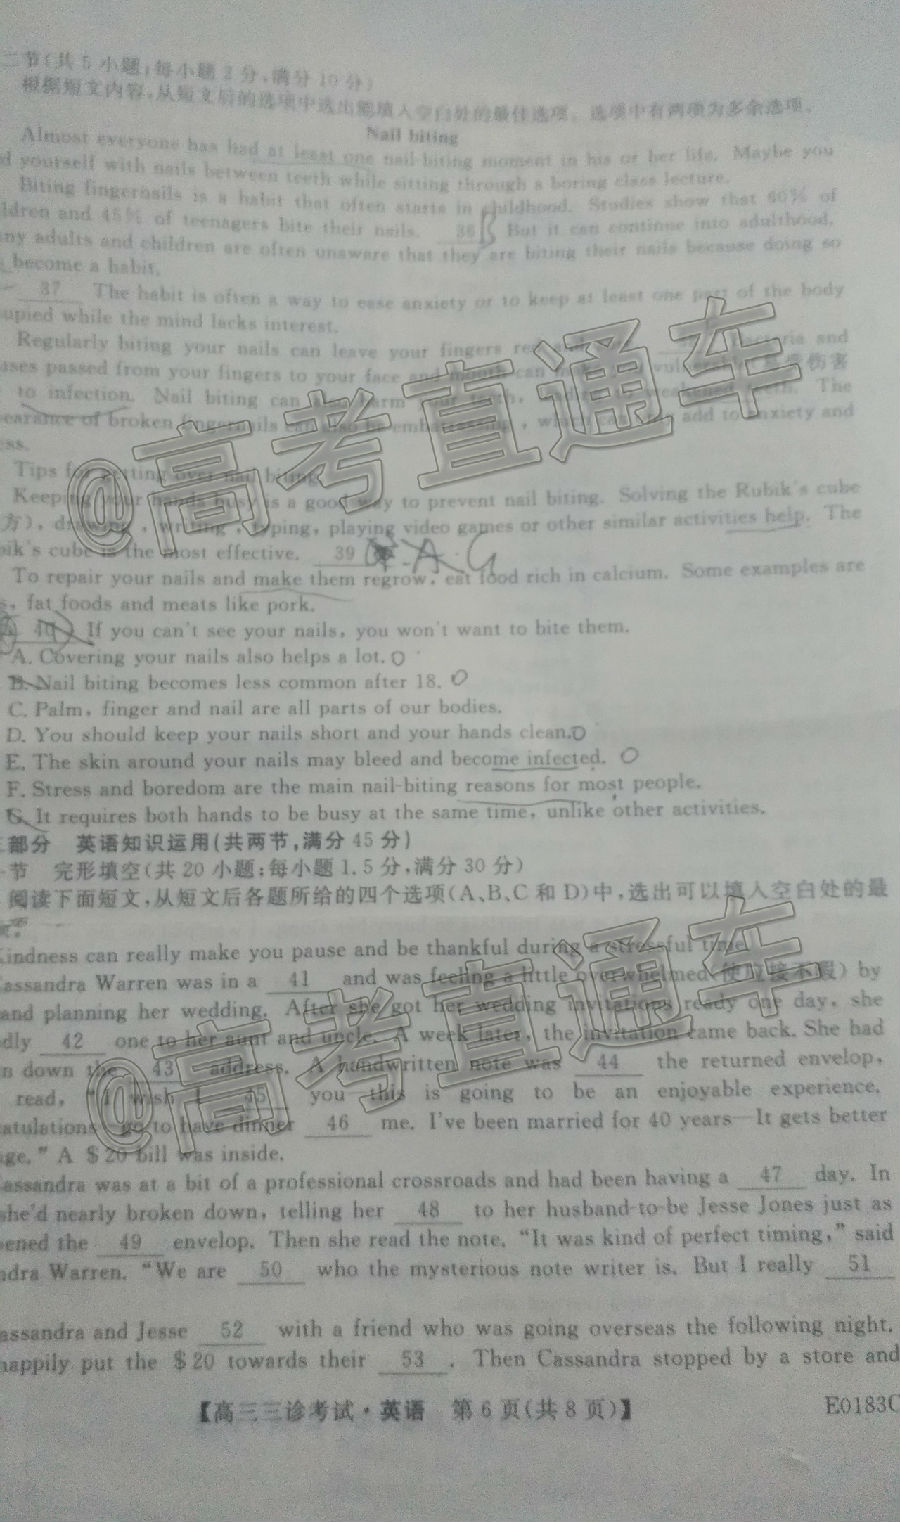 二节(共5小题;每小题2分,满分10分)
根据短文内容,从短文后的选项中选出能填入空白处的最佳选项。选项中有两项为多余选项。
Nail biting
Almost everyone has had at least one nail-biting moment in his or her life. Maybe you
d yourself with nails between teeth while sitting through a boring class lecture.
Biting fingernails is a habit that often starts in childhood. Studies show that 60% of
ldren and 45% of teenagers bite their nails. 36 But it can continue into adulthood.
ny adults and children are often unaware that they are biting their nails because doing so
become a habit.
37 The habit is often a way to ease anxiety or to keep at least one part of the body
upied while the mind lacks interest.
Regularly biting your nails can leave your fingers and
uses passed from your fingers to your face and mouth can 伤害
to infection. Nail biting can harm your teeth, The
earance of broken fingernails can also be embarrassing, which can add to anxiety and
ess.
Tips for getting over nail biting
Keeping your hands busy is a good way to prevent nail biting. Solving the Rubik's cube
方), drawing, writing, typing, playing video games or other similar activities help. The
bik's cube is the most effective. 39 A G
To repair your nails and make them regrow, eat food rich in calcium. Some examples are
s, fat foods and meats like pork.
40 If you can't see your nails, you won't want to bite them.
A. Covering your nails also helps a lot.
B. Nail biting becomes less common after 18.
C. Palm, finger and nail are all parts of our bodies.
D. You should keep your nails short and your hands clean.
E. The skin around your nails may bleed and become infected.
F. Stress and boredom are the main nail-biting reasons for most people.
G. It requires both hands to be busy at the same time, unlike other activities.
部分 英语知识运用(共两节,满分45分)
节 完形填空(共20小题;每小题1.5分,满分30分)
阅读下面短文,从短文后各题所给的四个选项(A、B、C和D)中,选出可以填入空白处的最
项。
indness can really make you pause and be thankful during a stressful time.
assandra Warren was in a 41 and was feeling a little overwhelmed(使应接不暇) by
and planning her wedding. After she got her wedding invitations ready one day, she
dly 42 one to her aunt and uncle. A week later, the invitation came back. She had
n down the 43 address. A handwritten note was 44 the returned envelop,
read, "I wish I 45 you this is going to be an enjoyable experience.
atulations go to have dinner 46 me. I've been married for 40 years—It gets better
ge." A $20 bill was inside.
assandra was at a bit of a professional crossroads and had been having a 47 day. In
she'd nearly broken down, telling her 48 to her husband-to-be Jesse Jones just as
ened the 49 envelop. Then she read the note. "It was kind of perfect timing," said
ndra Warren. "We are 50 who the mysterious note writer is. But I really 51
assandra and Jesse 52 with a friend who was going overseas the following night.
happily put the $20 towards their 53 . Then Cassandra stopped by a store and
【高三三诊考试·英语 第6页(共8页)】
E0183C
@高考直通车
@高考直通车